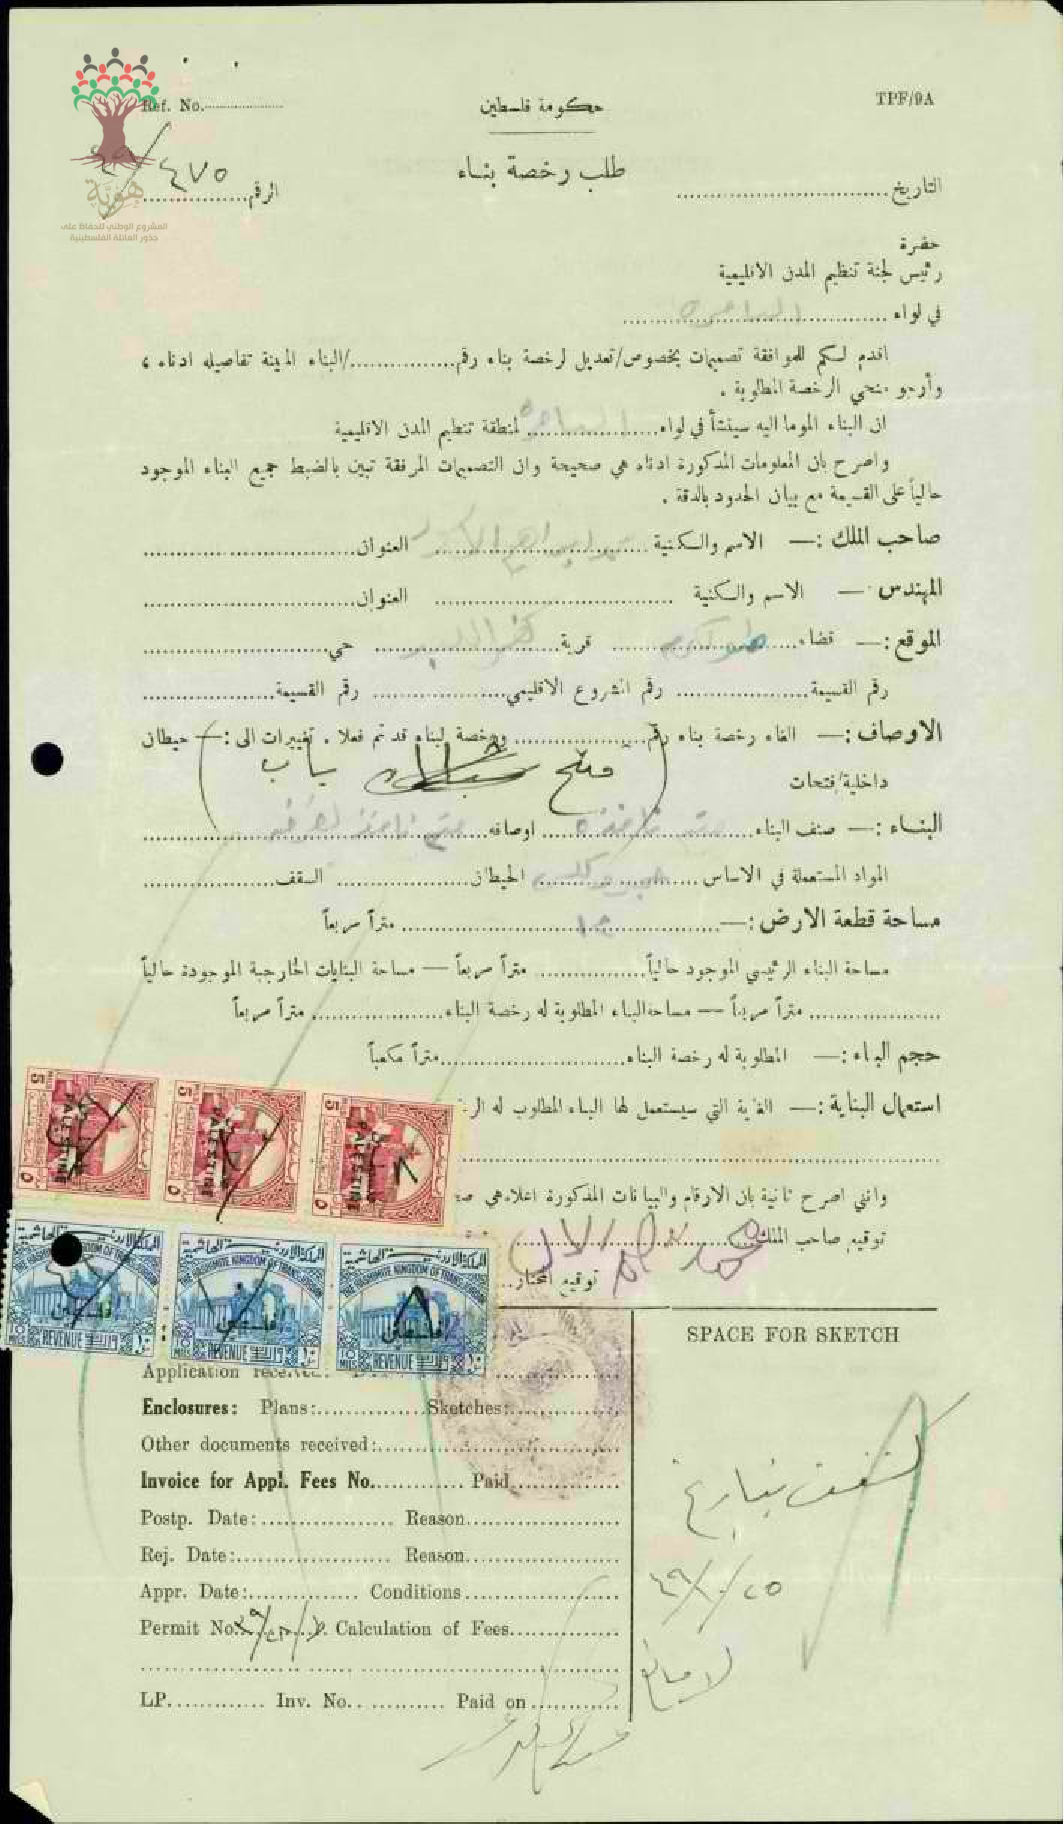 Ref. No.
حكومة فلسطين
TPF/9A
طلب رخصة بناء
الرقم ٤٧٥/٤٩
التاريخ
هوية
المشروع الوطني للحفاظ على
جذور العائلة الفلسطينية
حضرة
رئيس لجنة تنظيم المدن الاقليمية
في لواء السامرة
اقدم لكم للموافقة تصميمات بخصوص/تعديل لرخصة بناء رقم /البناء المبينة تفاصيله ادناه ،
وأرجو منحي الرخصة المطلوبة .
ان البناء الموما اليه سينشأ في لواء السامرة لمنطقة تنظيم المدن الاقليمية
واصرح بان المعلومات المذكورة ادناه هي صحيحة وان التصميمات المرفقة تبين بالضبط جميع البناء الموجود
حالياً على القسيمة مع بيان الحدود بالدقة .
صاحب الملك :— الاسم والكنية العنوان
المهندس — الاسم والكنية العنوان
الموقع :— قضاء طولكرم قرية كفر اللبد حي
رقم القسيمة رقم المشروع الاقليمي رقم القسيمة
الاوصاف :— الغاء رخصة بناء رقم ورخصة لبناء قد تم فعلا . تغييرات الى :— حيطان
داخلية/فتحات
فتح شباك باب
البناء :— صنف البناء اوصافه
المواد المستعملة في الاساس الحيطان السقف
مساحة قطعة الارض :— متراً مربعاً
مساحة البناء الرئيسي الموجود حالياً متراً مربعاً — مساحة البنايات الخارجية الموجودة حالياً
متراً مربعاً — مساحة البناء المطلوبة له رخصة البناء متراً مربعاً
حجم البناء :— المطلوبة له رخصة البناء متراً مكعباً
استعمال البناية :— الغاية التي سيستعمل لها البناء المطلوب له
وانني اصرح ثانية بان الارقام والبيانات المذكورة اعلاه هي
توقيع صاحب الملك
توقيع المختار
5 PALESTINE
5 PALESTINE
5 PALESTINE
المملكة الاردنية الهاشمية
THE HASHEMITE KINGDOM OF TRANSJORDAN
فلسطين
10 MILS REVENUE
المملكة الاردنية الهاشمية
فلسطين
REVENUE
المملكة الاردنية الهاشمية
فلسطين
REVENUE
SPACE FOR SKETCH
Application received:
Enclosures: Plans: Sketches:
Other documents received:
Invoice for Appl. Fees No. Paid
Postp. Date: Reason
Rej. Date: Reason
Appr. Date: Conditions
Permit No. Calculation of Fees
LP. Inv. No. Paid on
كشفت بتاريخ
٢٥/١٠/٤٩
لا مانع